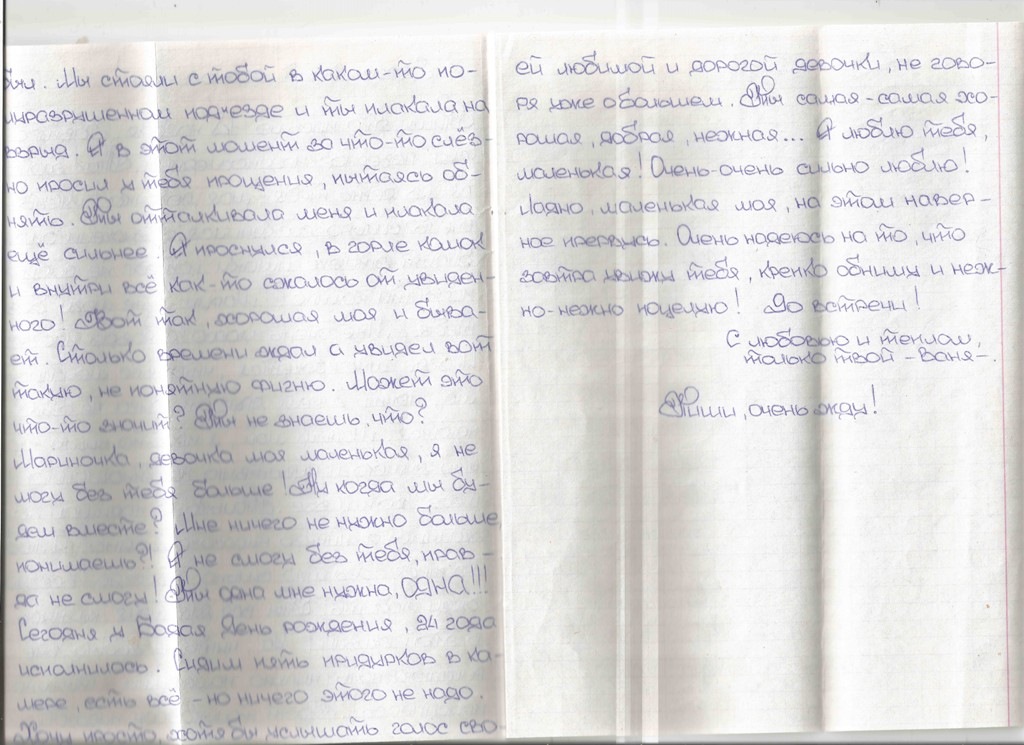 был. Мы стояли с тобой в каком-то по-
луразрушенном подъезде и ты плакала на
взрыд. А в этот момент за что-то слёз-
но просил у тебя прощения, пытаясь об-
нять. Ты отталкивала меня и плакала
ещё сильнее. Я проснулся, в горле комок
и внутри всё как-то сжалось от увиден-
ного! Вот так, хорошая моя и быва-
ет. Столько времени ждал а увидел вот
такую, не понятную фигню. Может это
что-то значит? Ты не знаешь, что?
Мариночка, девочка моя маленькая, я не
могу без тебя больше! Ну когда мы бу-
дем вместе? Мне ничего не нужно больше,
понимаешь?! Я не смогу без тебя, прав-
да не смогу! Ты одна мне нужна, ОДНА!!!
Сегодня у Бадая День рождения, 24 года
исполнилось. Сидим пять придурков в ка-
мере, есть всё - но ничего этого не надо.
Хочу просто, хотя бы услышать голос сво-
ей любимой и дорогой девочки, не гово-
ря уже о большем. Ты самая-самая хо-
рошая, добрая, нежная... Я люблю тебя,
маленькая! Очень-очень сильно люблю!
Ладно, маленькая моя, на этом навер-
ное прервусь. Очень надеюсь на то, что
завтра увижу тебя, крепко обниму и неж-
но-нежно поцелую! До встречи!
С любовью и теплом,
только твой -Ваня-.
Пиши, очень жду!